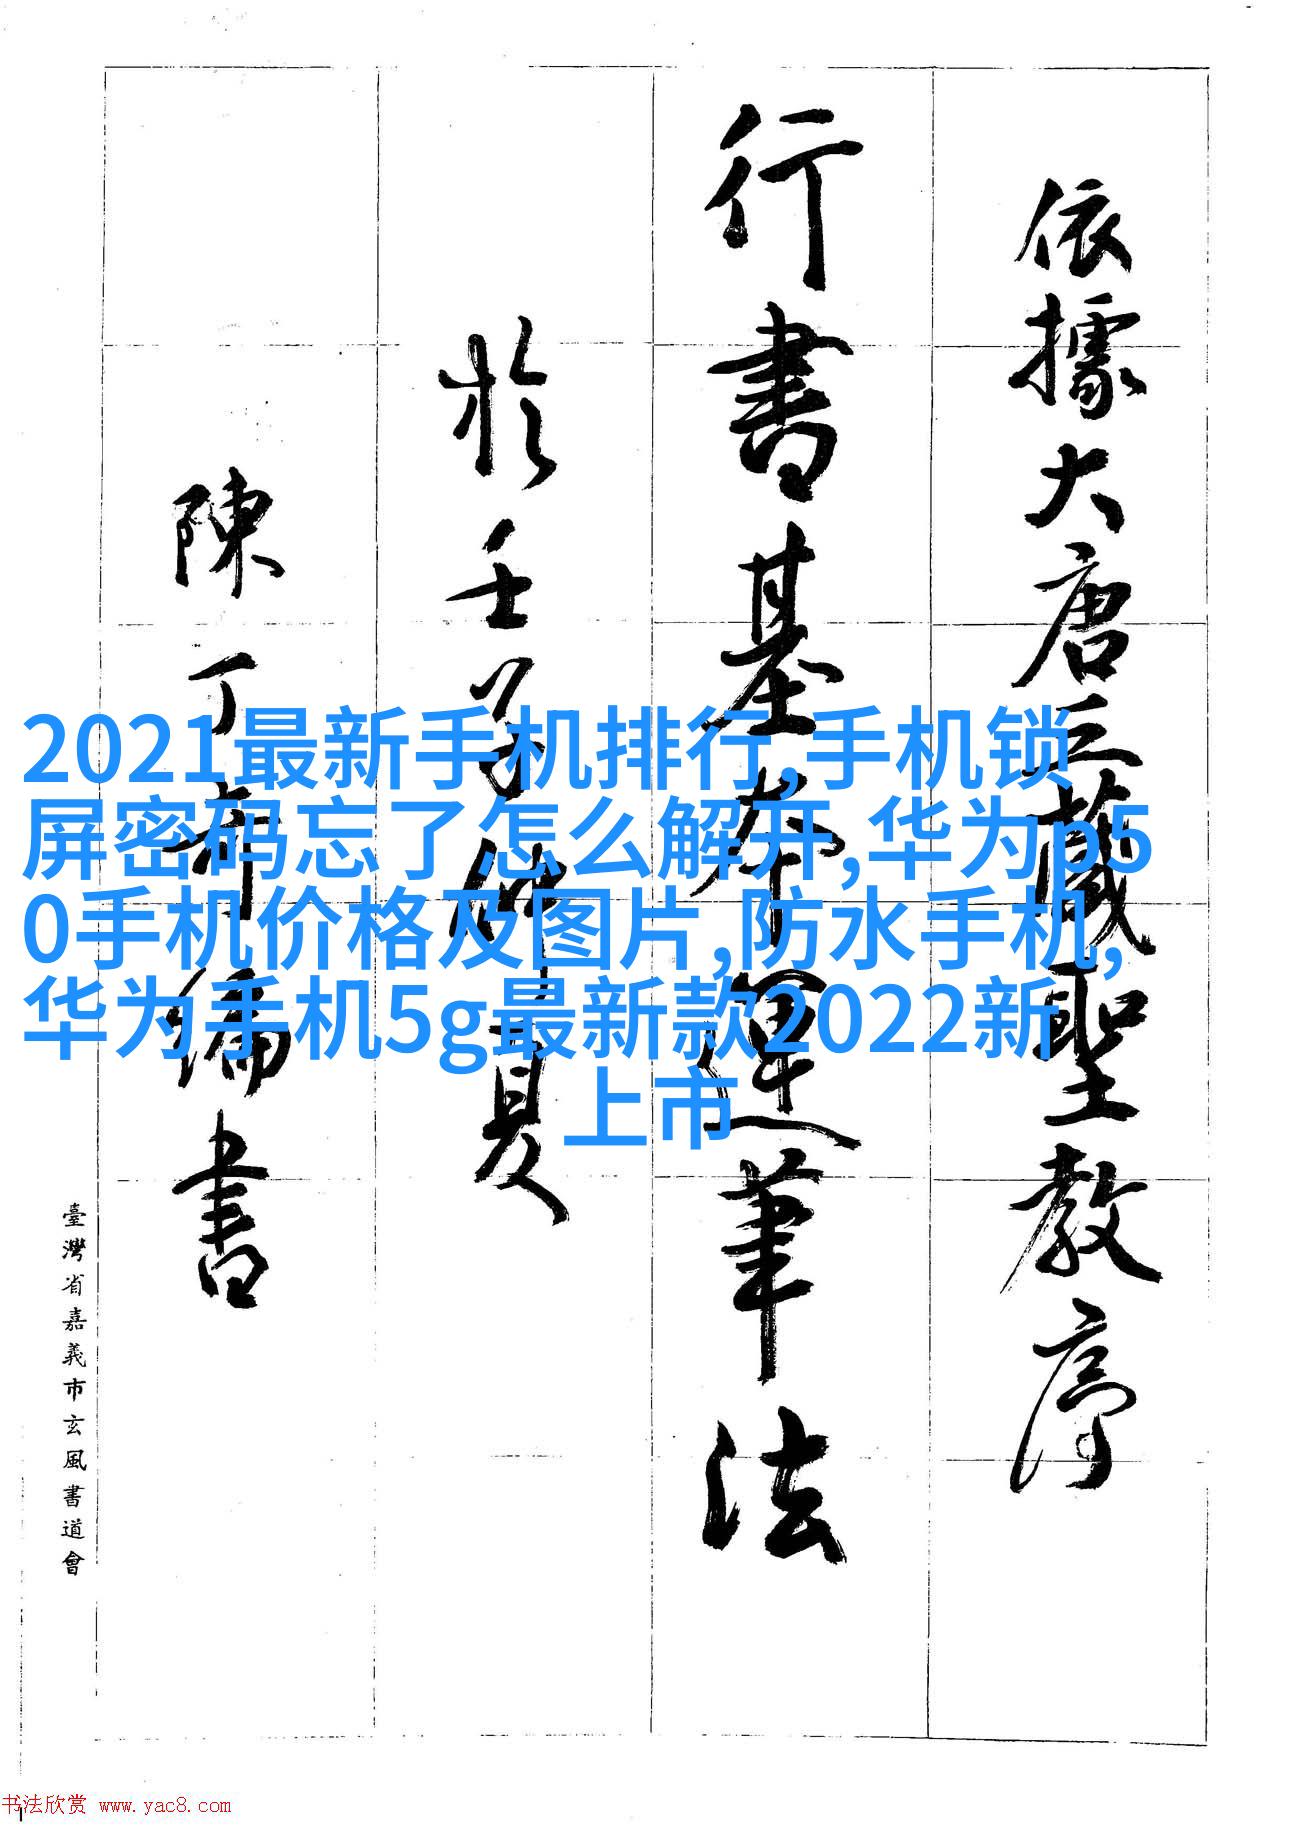 依據大唐三藏聖教序
行書基本運筆法
於壬子仲夏
陳丁奇編書
臺灣省嘉義市玄風書道會
2021最新手机排行,手机锁
屏密码忘了怎么解开,华为p5
0手机价格及图片,防水手机,
华为手机5g最新款2022新
上市
书法欣赏 www.yac8.com